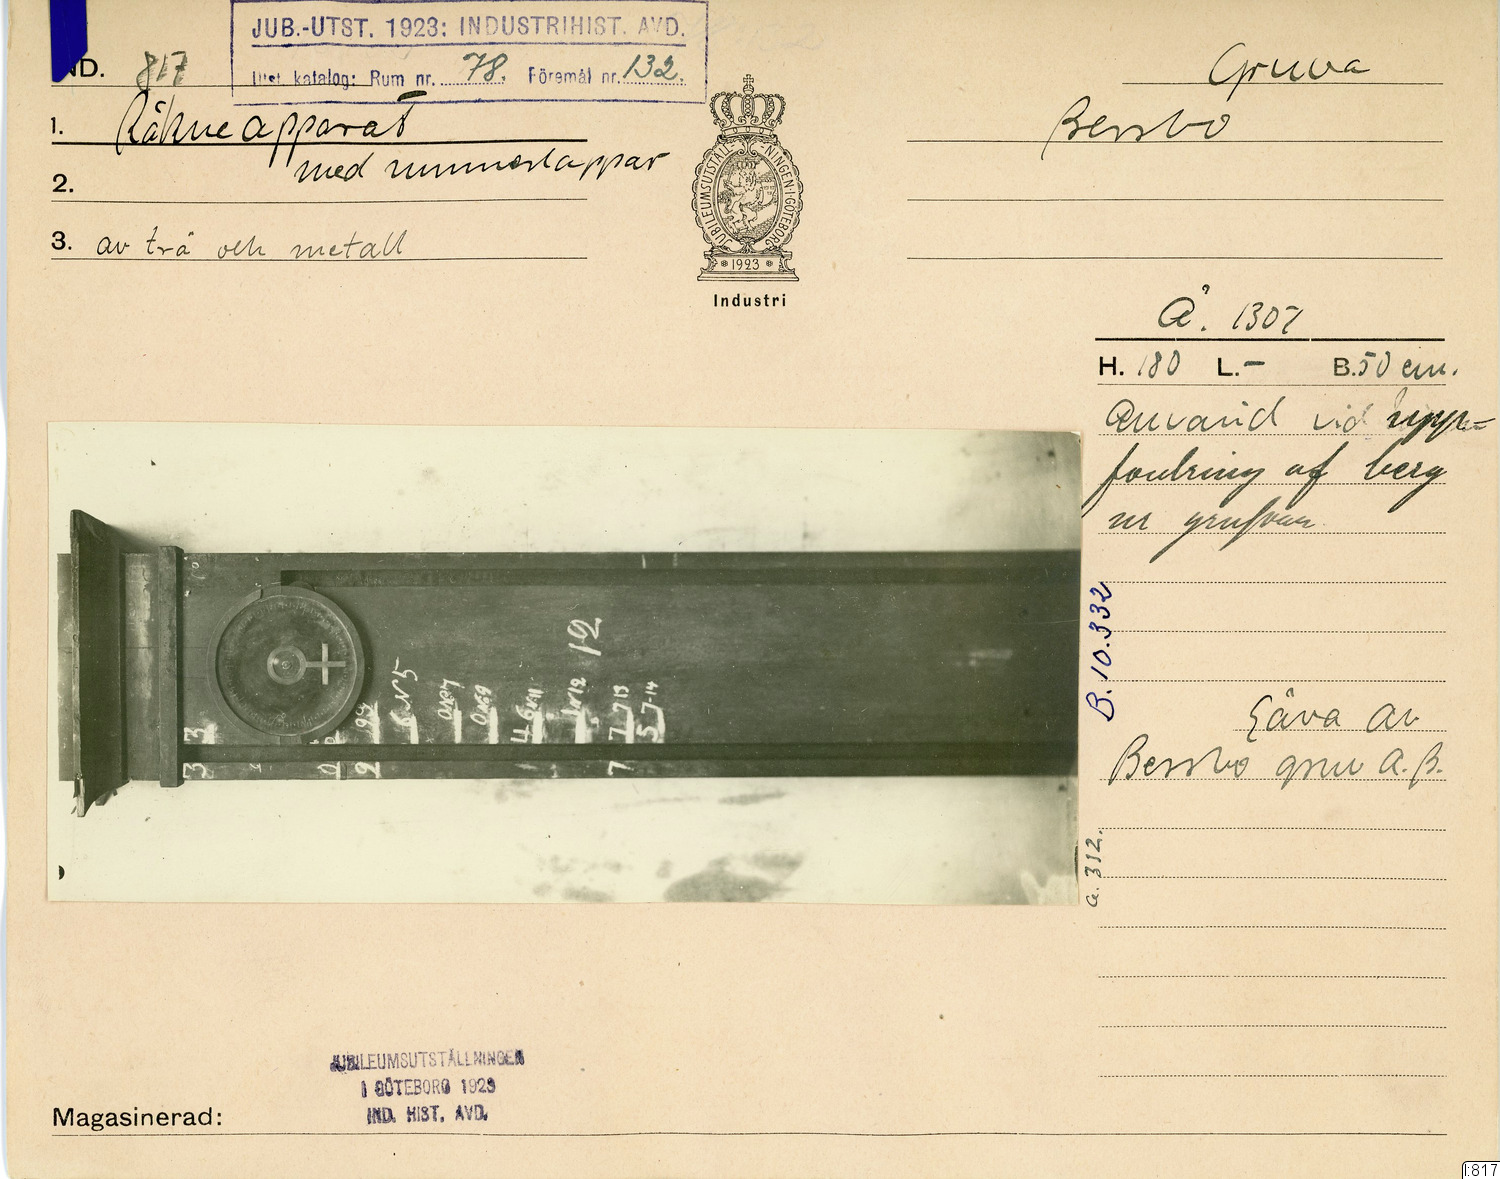 JUB.-UTST. 1923: INDUSTRIHIST. AVD.
Ill. katalog: Rum nr. 78. Föremål nr. 132.
IND. 817
1. Räkneapparat
2. med nummerlappar
3. av trä och metall
JUBILEUMSUTSTÄLLNINGEN·I·GÖTEBORG
1923
Industri
Gruva
Bersbo
Å. 1307
H. 180 L. - B. 50 cm.
Använd vid upp-
fordring af berg
ur grufvan
B. 10.332
Gåva av
Bersbo gruv A.B.
G. 312.
12
N5
JUBILEUMSUTSTÄLLNINGEN
I GÖTEBORG 1923
IND. HIST. AVD.
Magasinerad:
I:817